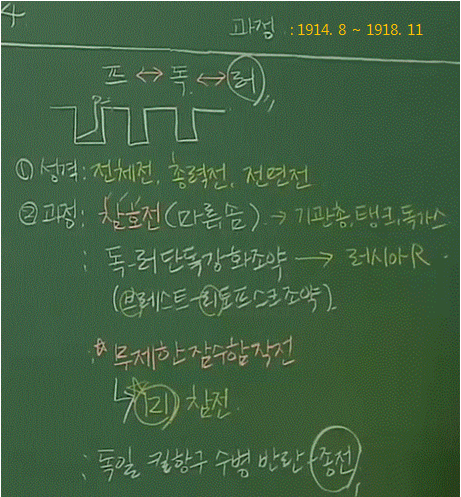 4
과정 : 1914. 8 ~ 1918. 11
프 ↔ 독 ↔ 러
① 성격 : 전체전, 총력전, 전면전
② 과정 : 참호전 (마른, 솜) → 기관총, 탱크, 독가스
: 독-러 단독강화조약 → 러시아 R.
(브레스트-리토프스크조약)
: * 무제한 잠수함 작전
↳ 미 참전
: 독일 킬항구 수병 반란 - 종전